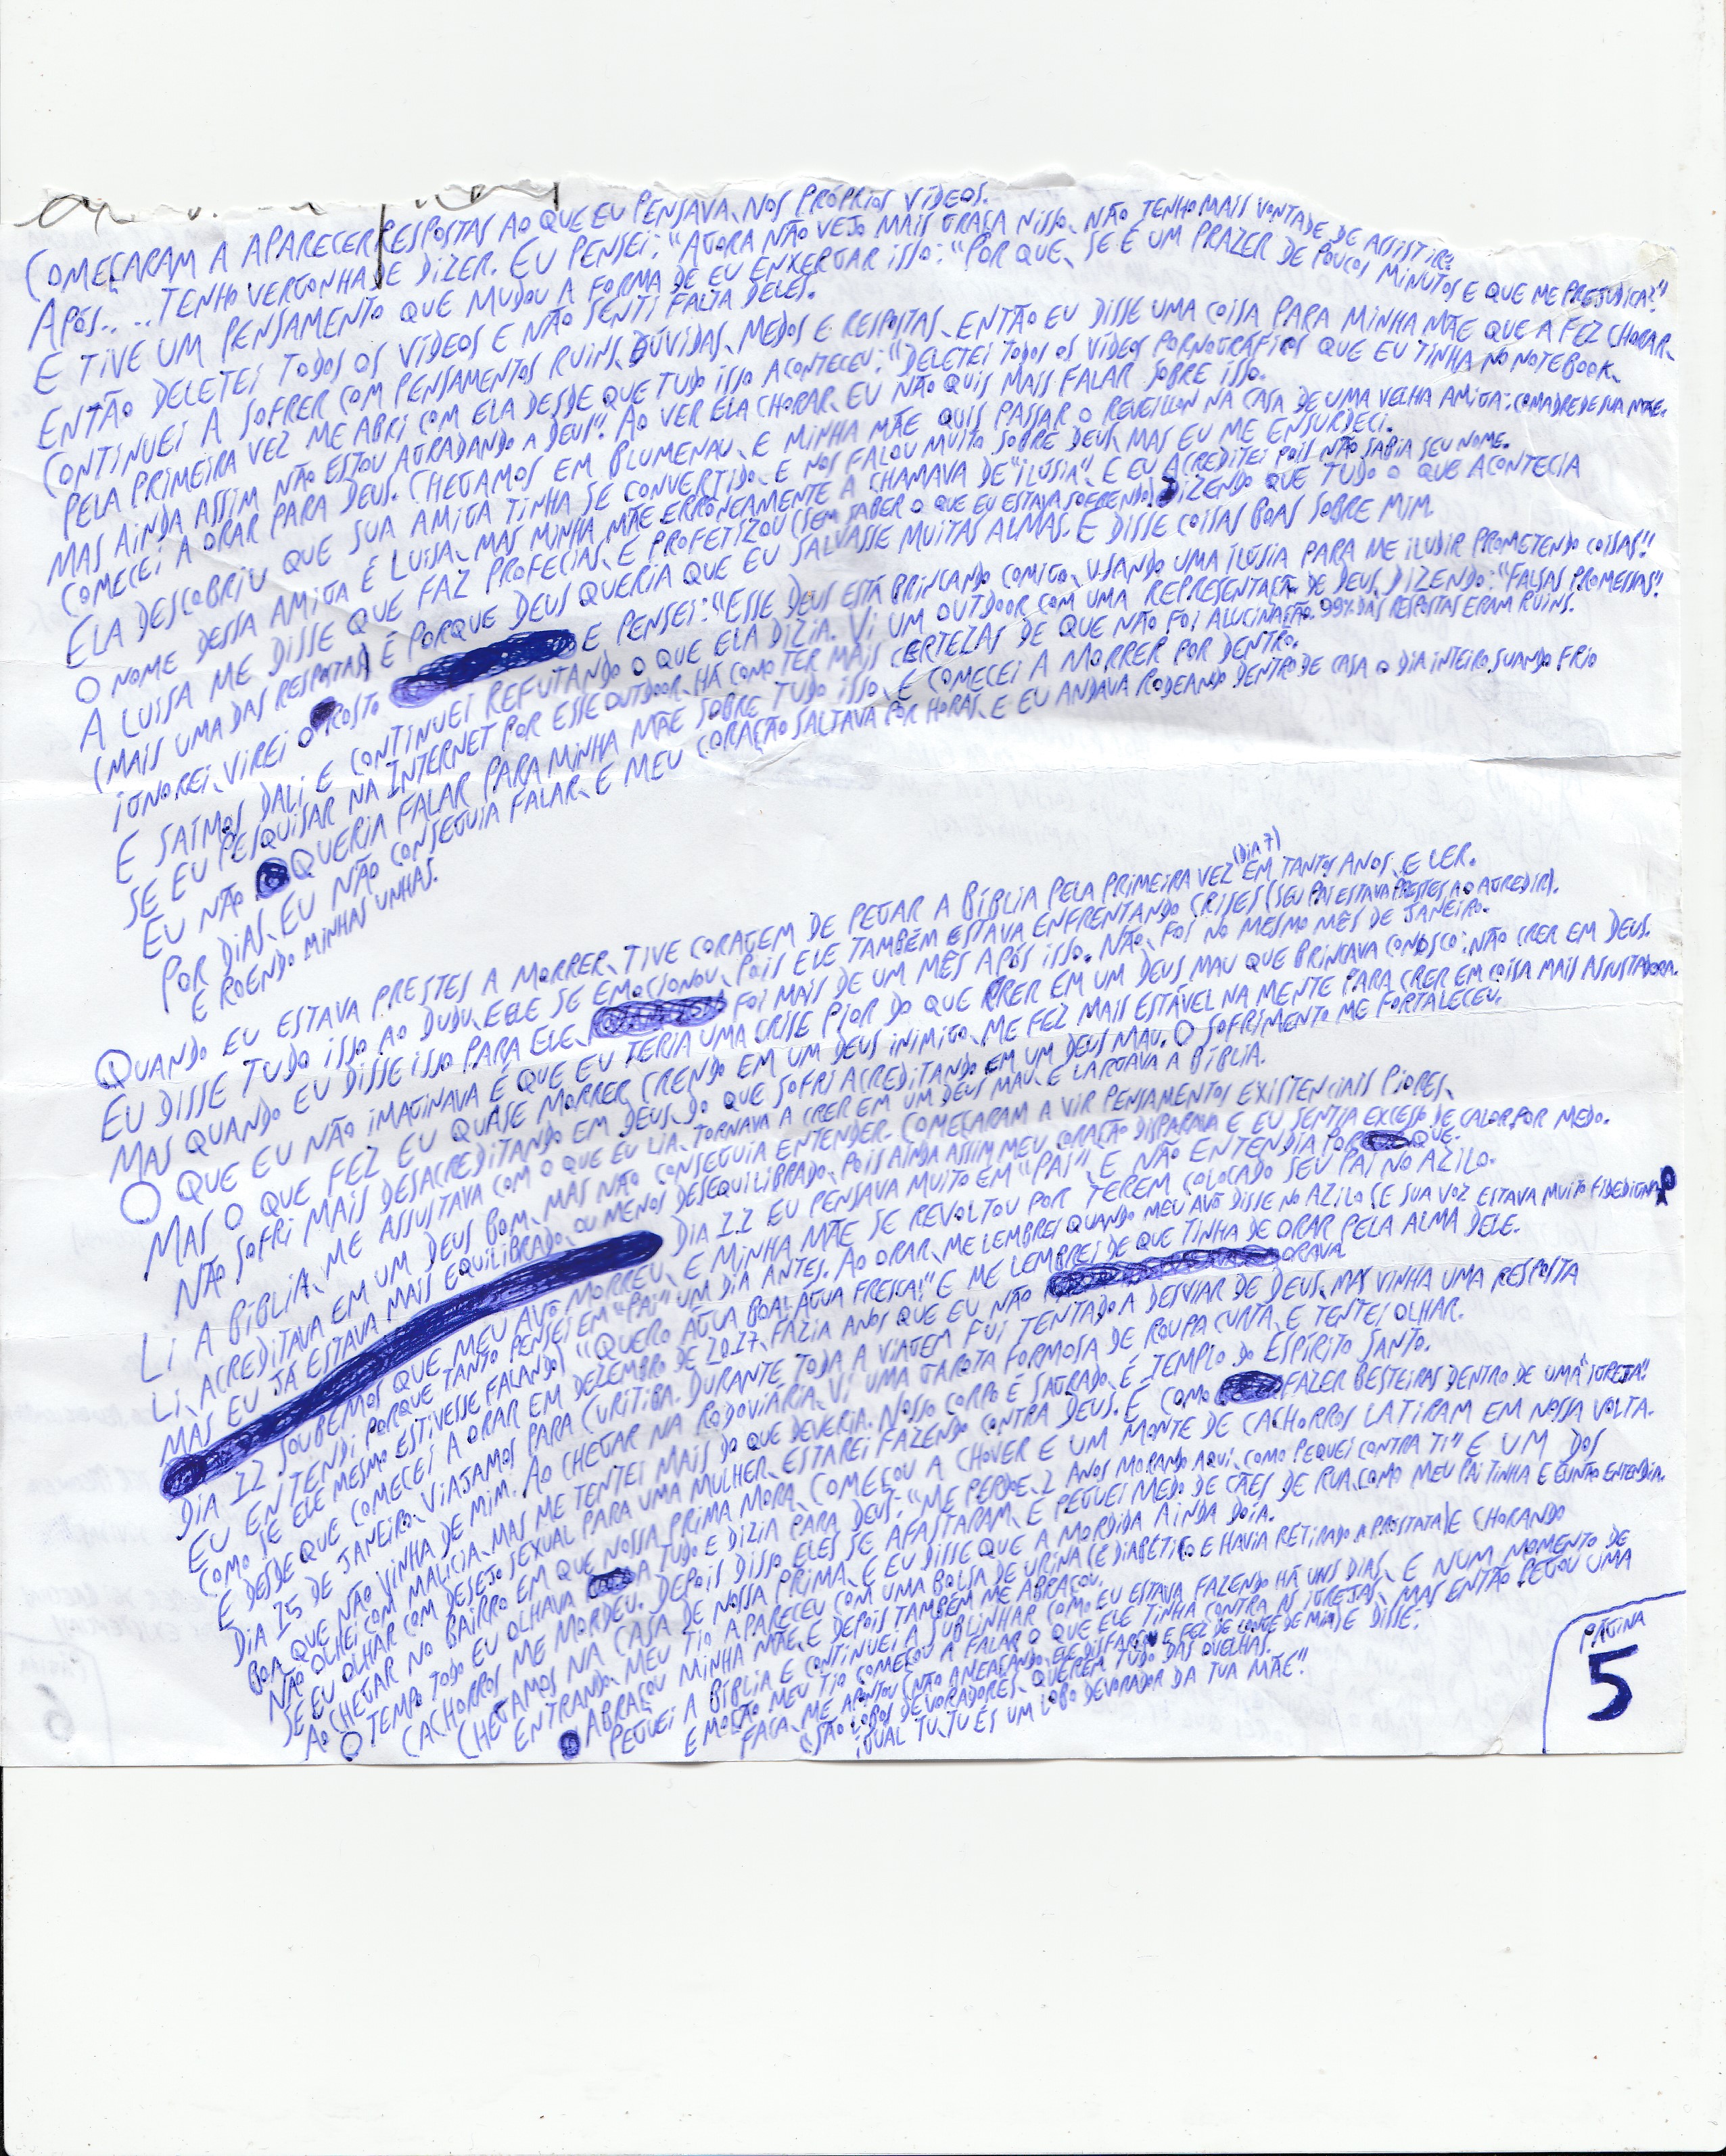 COMEÇARAM A APARECER RESPOSTAS AO QUE EU PENSAVA, NOS PRÓPRIOS VÍDEOS.
APÓS.. ..TENHO VERGONHA DE DIZER. EU PENSEI: "AGORA NÃO VEJO MAIS GRAÇA NISSO, NÃO TENHO MAIS VONTADE DE ASSISTIR."
E TIVE UM PENSAMENTO QUE MUDOU A FORMA DE EU ENXERGAR ISSO: "POR QUE, SE É UM PRAZER DE POUCOS MINUTOS E QUE ME PREJUDICA?"
ENTÃO DELETEI TODOS OS VÍDEOS E NÃO SENTI FALTA DELES.
CONTINUEI A SOFRER COM PENSAMENTOS RUINS, DÚVIDAS, MEDOS E RESPOSTAS, ENTÃO EU DISSE UMA COISA PARA MINHA MÃE QUE A FEZ CHORAR,
PELA PRIMEIRA VEZ ME ABRI COM ELA DESDE QUE TUDO ISSO ACONTECEU: "DELETEI TODOS OS VÍDEOS PORNOGRÁFICOS QUE EU TINHA NO NOTEBOOK,
MAS AINDA ASSIM NÃO ESTOU AGRADANDO A DEUS". AO VER ELA CHORAR, EU NÃO QUIS MAIS FALAR SOBRE ISSO.
COMECEI A ORAR PARA DEUS. CHEGAMOS EM BLUMENAU, E MINHA MÃE QUIS PASSAR O REVEILLON NA CASA DE UMA VELHA AMIGA: COMADRE DE SUA MÃE.
ELA DESCOBRIU QUE SUA AMIGA TINHA SE CONVERTIDO, E NOS FALOU MUITO SOBRE DEUS, MAS EU ME ENSURDECI.
O NOME DESSA AMIGA É LUISA, MAS MINHA MÃE ERRONEAMENTE A CHAMAVA DE "ILUSIA", E EU ACREDITEI POIS NÃO SABIA SEU NOME.
A LUISA ME DISSE QUE FAZ PROFECIAS, E PROFETIZOU (SEM SABER O QUE EU ESTAVA SOFRENDO) DIZENDO QUE TUDO O QUE ACONTECIA
(MAIS UMA DAS RESPOSTAS) É PORQUE DEUS QUERIA QUE EU SALVASSE MUITAS ALMAS. E DISSE COISAS BOAS SOBRE MIM
IGNOREI, VIREI O ROSTO E PENSEI: "ESSE DEUS ESTÁ BRINCANDO COMIGO, USANDO UMA ILÚSIA PARA ME ILUDIR PROMETENDO COISAS!"
E SAÍMOS DALI E CONTINUEI REFUTANDO O QUE ELA DIZIA. VI UM OUTDOOR COM UMA REPRESENTAÇÃO DE DEUS, DIZENDO: "FALSAS PROMESSAS".
SE EU PESQUISAR NA INTERNET POR ESSE OUTDOOR, HÁ COMO TER MAIS CERTEZAS DE QUE NÃO FOI ALUCINAÇÃO. 99% DAS RESPOSTAS ERAM RUINS.
EU NÃO QUERIA FALAR PARA MINHA MÃE SOBRE TUDO ISSO, E COMECEI A MORRER POR DENTRO.
POR DIAS, EU NÃO CONSEGUIA FALAR, E MEU CORAÇÃO SALTAVA POR HORAS, E EU ANDAVA RODEANDO DENTRO DE CASA O DIA INTEIRO, SUANDO FRIO
E ROENDO MINHAS UNHAS.
QUANDO EU ESTAVA PRESTES A MORRER, TIVE CORAGEM DE PEGAR A BÍBLIA PELA PRIMEIRA VEZ (DIA 7) EM TANTOS ANOS, E LER.
EU DISSE TUDO ISSO AO DUDU, E ELE SE EMOCIONOU, POIS ELE TAMBÉM ESTAVA ENFRENTANDO CRISES (SEU PAI ESTAVA PRESTES A O AGREDIR).
MAS QUANDO EU DISSE ISSO PARA ELE, FOI MAIS DE UM MÊS APÓS ISSO. NÃO, FOI NO MESMO MÊS DE JANEIRO.
O QUE EU NÃO IMAGINAVA É QUE EU TERIA UMA CRISE PIOR DO QUE CRER EM UM DEUS MAU QUE BRINCAVA CONOSCO: NÃO CRER EM DEUS.
MAS O QUE FEZ EU QUASE MORRER CRENDO EM UM DEUS INIMIGO, ME FEZ MAIS ESTÁVEL NA MENTE PARA CRER EM COISA MAIS ASSUSTADORA.
NÃO SOFRI MAIS DESACREDITANDO EM DEUS, DO QUE SOFRI ACREDITANDO EM UM DEUS MAU. O SOFRIMENTO ME FORTALECEU.
LI A BÍBLIA, ME ASSUSTAVA COM O QUE EU LIA, TORNAVA A CRER EM UM DEUS MAU, E LARGAVA A BÍBLIA.
LI, ACREDITAVA EM UM DEUS BOM, MAS NÃO CONSEGUIA ENTENDER. COMEÇARAM A VIR PENSAMENTOS EXISTENCIAIS PIORES,
MAS EU JÁ ESTAVA MAIS EQUILIBRADO, OU MENOS DESEQUILIBRADO, POIS AINDA ASSIM MEU CORAÇÃO DISPARAVA E EU SENTIA EXCESSO DE CALOR POR MEDO.
DIA 11 EU PENSAVA MUITO EM "PAI", E NÃO ENTENDIA POR QUE.
DIA 12 SOUBEMOS QUE MEU AVÔ MORREU, E MINHA MÃE SE REVOLTOU POR TEREM COLOCADO SEU PAI NO AZILO.
EU ENTENDI PORQUE TANTO PENSEI EM "PAI" UM DIA ANTES. AO ORAR, ME LEMBREI QUANDO MEU AVÔ DISSE NO AZILO (E SUA VOZ ESTAVA MUITO FIDEDIGNA,
COMO SE ELE MESMO ESTIVESSE FALANDO) "QUERO ÁGUA BOA! ÁGUA FRESCA!" E ME LEMBREI DE QUE TINHA DE ORAR PELA ALMA DELE.
E DESDE QUE COMECEI A ORAR EM DEZEMBRO DE 2017, FAZIA ANOS QUE EU NÃO ORAVA
DIA 15 DE JANEIRO, VIAJAMOS PARA CURITIBA. DURANTE TODA A VIAGEM FUI TENTADO A DESVIAR DE DEUS, MAS VINHA UMA RESPOSTA
BOA QUE NÃO VINHA DE MIM. AO CHEGAR NA RODOVIÁRIA, VI UMA GAROTA FORMOSA DE ROUPA CURTA, E TENTEI OLHAR.
NÃO OLHEI COM MALÍCIA, MAS ME TENTEI MAIS DO QUE DEVERIA. NOSSO CORPO É SAGRADO, É TEMPLO DO ESPÍRITO SANTO.
SE EU OLHAR COM DESEJO SEXUAL PARA UMA MULHER, ESTAREI FAZENDO CONTRA DEUS. É COMO FAZER BESTEIRAS DENTRO DE UMA "IGREJA".
AO CHEGAR NO BAIRRO EM QUE NOSSA PRIMA MORA, COMEÇOU A CHOVER E UM MONTE DE CACHORROS LATIRAM EM NOSSA VOLTA.
O TEMPO TODO EU OLHAVA A TUDO E DIZIA PARA DEUS: "ME PERDOE, 2 ANOS MORANDO AQUI, COMO PEQUEI CONTRA TI" E UM DOS
CACHORROS ME MORDEU. DEPOIS DISSO, ELES SE AFASTARAM, E PEGUEI MEDO DE CÃES DE RUA, COMO MEU PAI TINHA E EU NÃO ENTENDIA.
CHEGAMOS NA CASA DE NOSSA PRIMA, E EU DISSE QUE A MORDIDA AINDA DOÍA.
ENTRANDO, MEU TIO APARECEU COM UMA BOLSA DE URINA (É DIABÉTICO E HAVIA RETIRADO A PRÓSTATA) E CHORANDO
ABRAÇOU MINHA MÃE, E DEPOIS TAMBÉM ME ABRAÇOU.
PEGUEI A BÍBLIA E CONTINUEI A SUBLINHAR COMO EU ESTAVA FAZENDO HÁ UNS DIAS, E NUM MOMENTO DE
EMOÇÃO MEU TIO COMEÇOU A FALAR O QUE ELE TINHA CONTRA AS IGREJAS, MAS ENTÃO PEGOU UMA
FACA, ME APONTOU (NÃO AMEAÇANDO, ELE DISFARÇOU E FEZ DE CONTE DE MIM) E DISSE:
"SÃO LOBOS DEVORADORES, QUEREM TUDO DAS OVELHAS.
IGUAL TU, TU ÉS UM LOBO DEVORADOR DA TUA MÃE".
PÁGINA
5